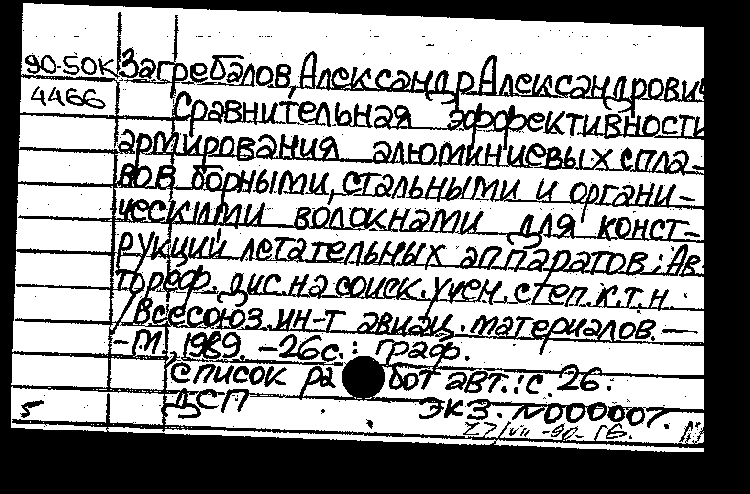 90-50К Загребалов, Александр Александрович
4466 Сравнительная эффективность
армирования алюминиевых спла-
вов борными, стальными и органи-
ческими волокнами для конст-
рукций летательных аппаратов: Ав-
тореф. дис. на соиск. учен. степ. к.т.н.
/Всесоюз. ин-т авиац. материалов. —
-М., 1989. -26с.: граф.
Список работ авт.: с. 26.
ДСП Экз. N000007.
5 27/VII-90-16.